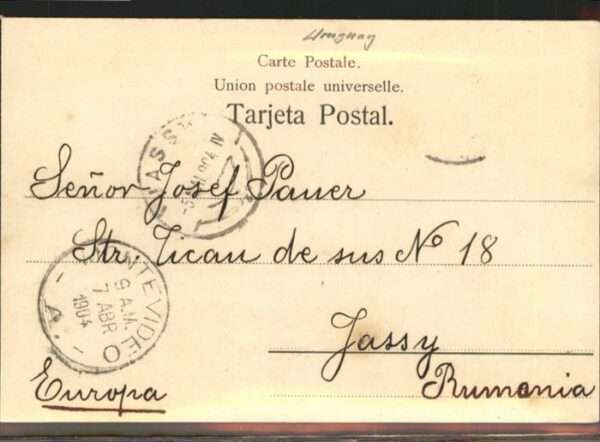 Uruguay
Carte Postale.
Union postale universelle.
Tarjeta Postal.
IASSI
904 IV
Señor Josef Pauer
Str. Ticau de sus No 18
MONTEVIDEO
9 A.M.
7 ABR
1904
A.
Jassy
Europa
Rumania